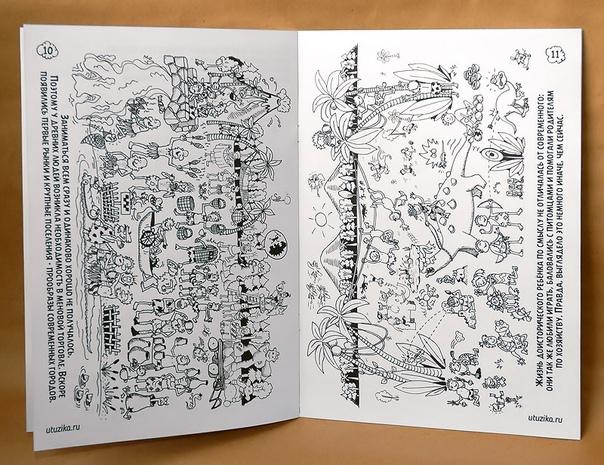 10
Заниматься всем сразу и одинаково хорошо не получалось.
Поэтому у древних людей возникла необходимость в меновой торговле. Вскоре
появились первые рынки и крупные поселения - прообразы современных городов.
utuzika.ru
11
Жизнь доисторического ребёнка по смыслу не отличалась от современного:
они так же любили играть, баловались с питомцами и помогали родителям
по хозяйству. Правда, выглядело это немного иначе, чем сейчас.
utuzika.ru